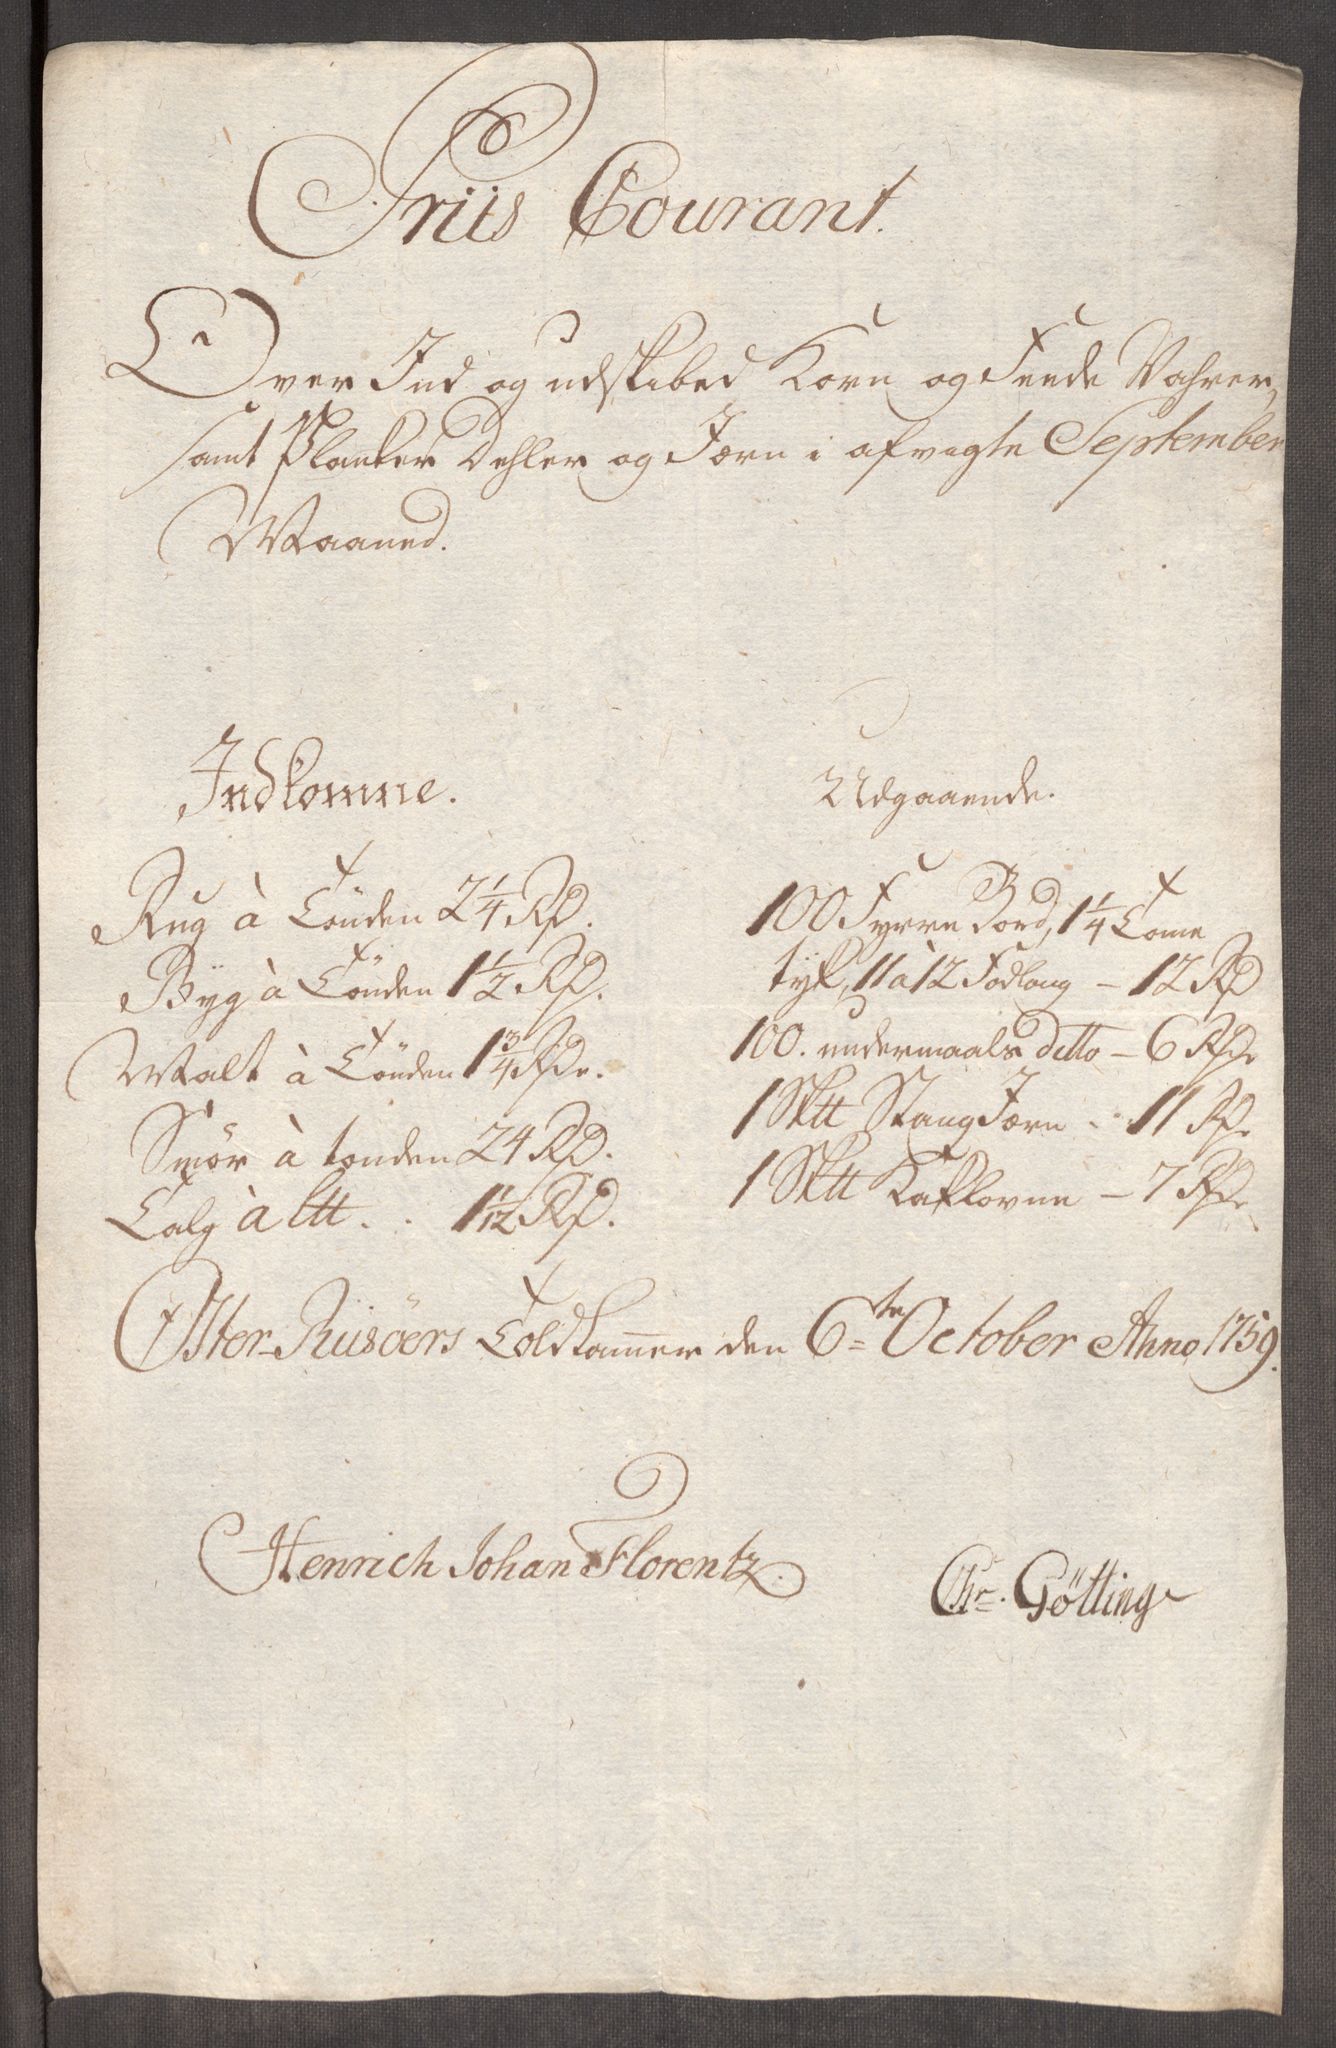 Priis Courant.
Over Ind og udskibed Korn og Feede Vahrer,
samt Planker Dehler og Jærn i afvigte September
Maaned.
Indkomne.
Rug à Tönden 2 1/4 Rd.
Byg à Tönden 1 1/2 Rd.
Malt à Tönden 1 3/4 Rdr.
Smör à tønden 24 Rd.
Talg à L℔ . . 1 1/12 Rd.
Udgaaende.
100 Fyrre Bord, 1 1/4 Tome
tyk, 11 à 12 Fodlang – 12 Rd
100. undermaals ditto – 6 Rdr
1 Sk℔ Stang Jærn . . 11 Rd.
1 Sk℔ Kakklovne – 7 Rdr
Öster-Riisöers Toldkammer den 6te October Anno 1759.
Henrich Johan Florentz.
Chr. Götting